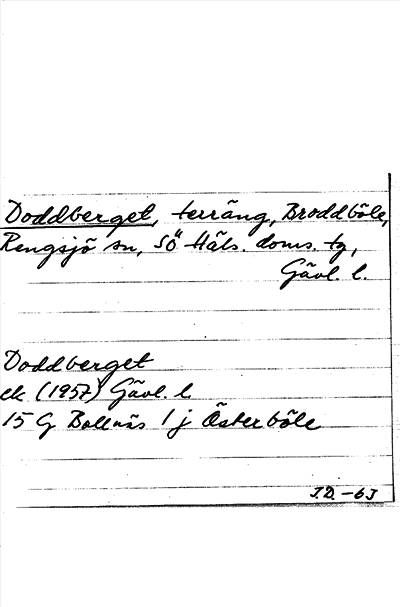 Doddberget, terräng, Broddböle,
Rengsjö sn, SÖ Häls. doms. tg,
Gävl. l.
Doddberget
ek (1957) Gävl. l
15 G Bollnäs 1 j Österböle